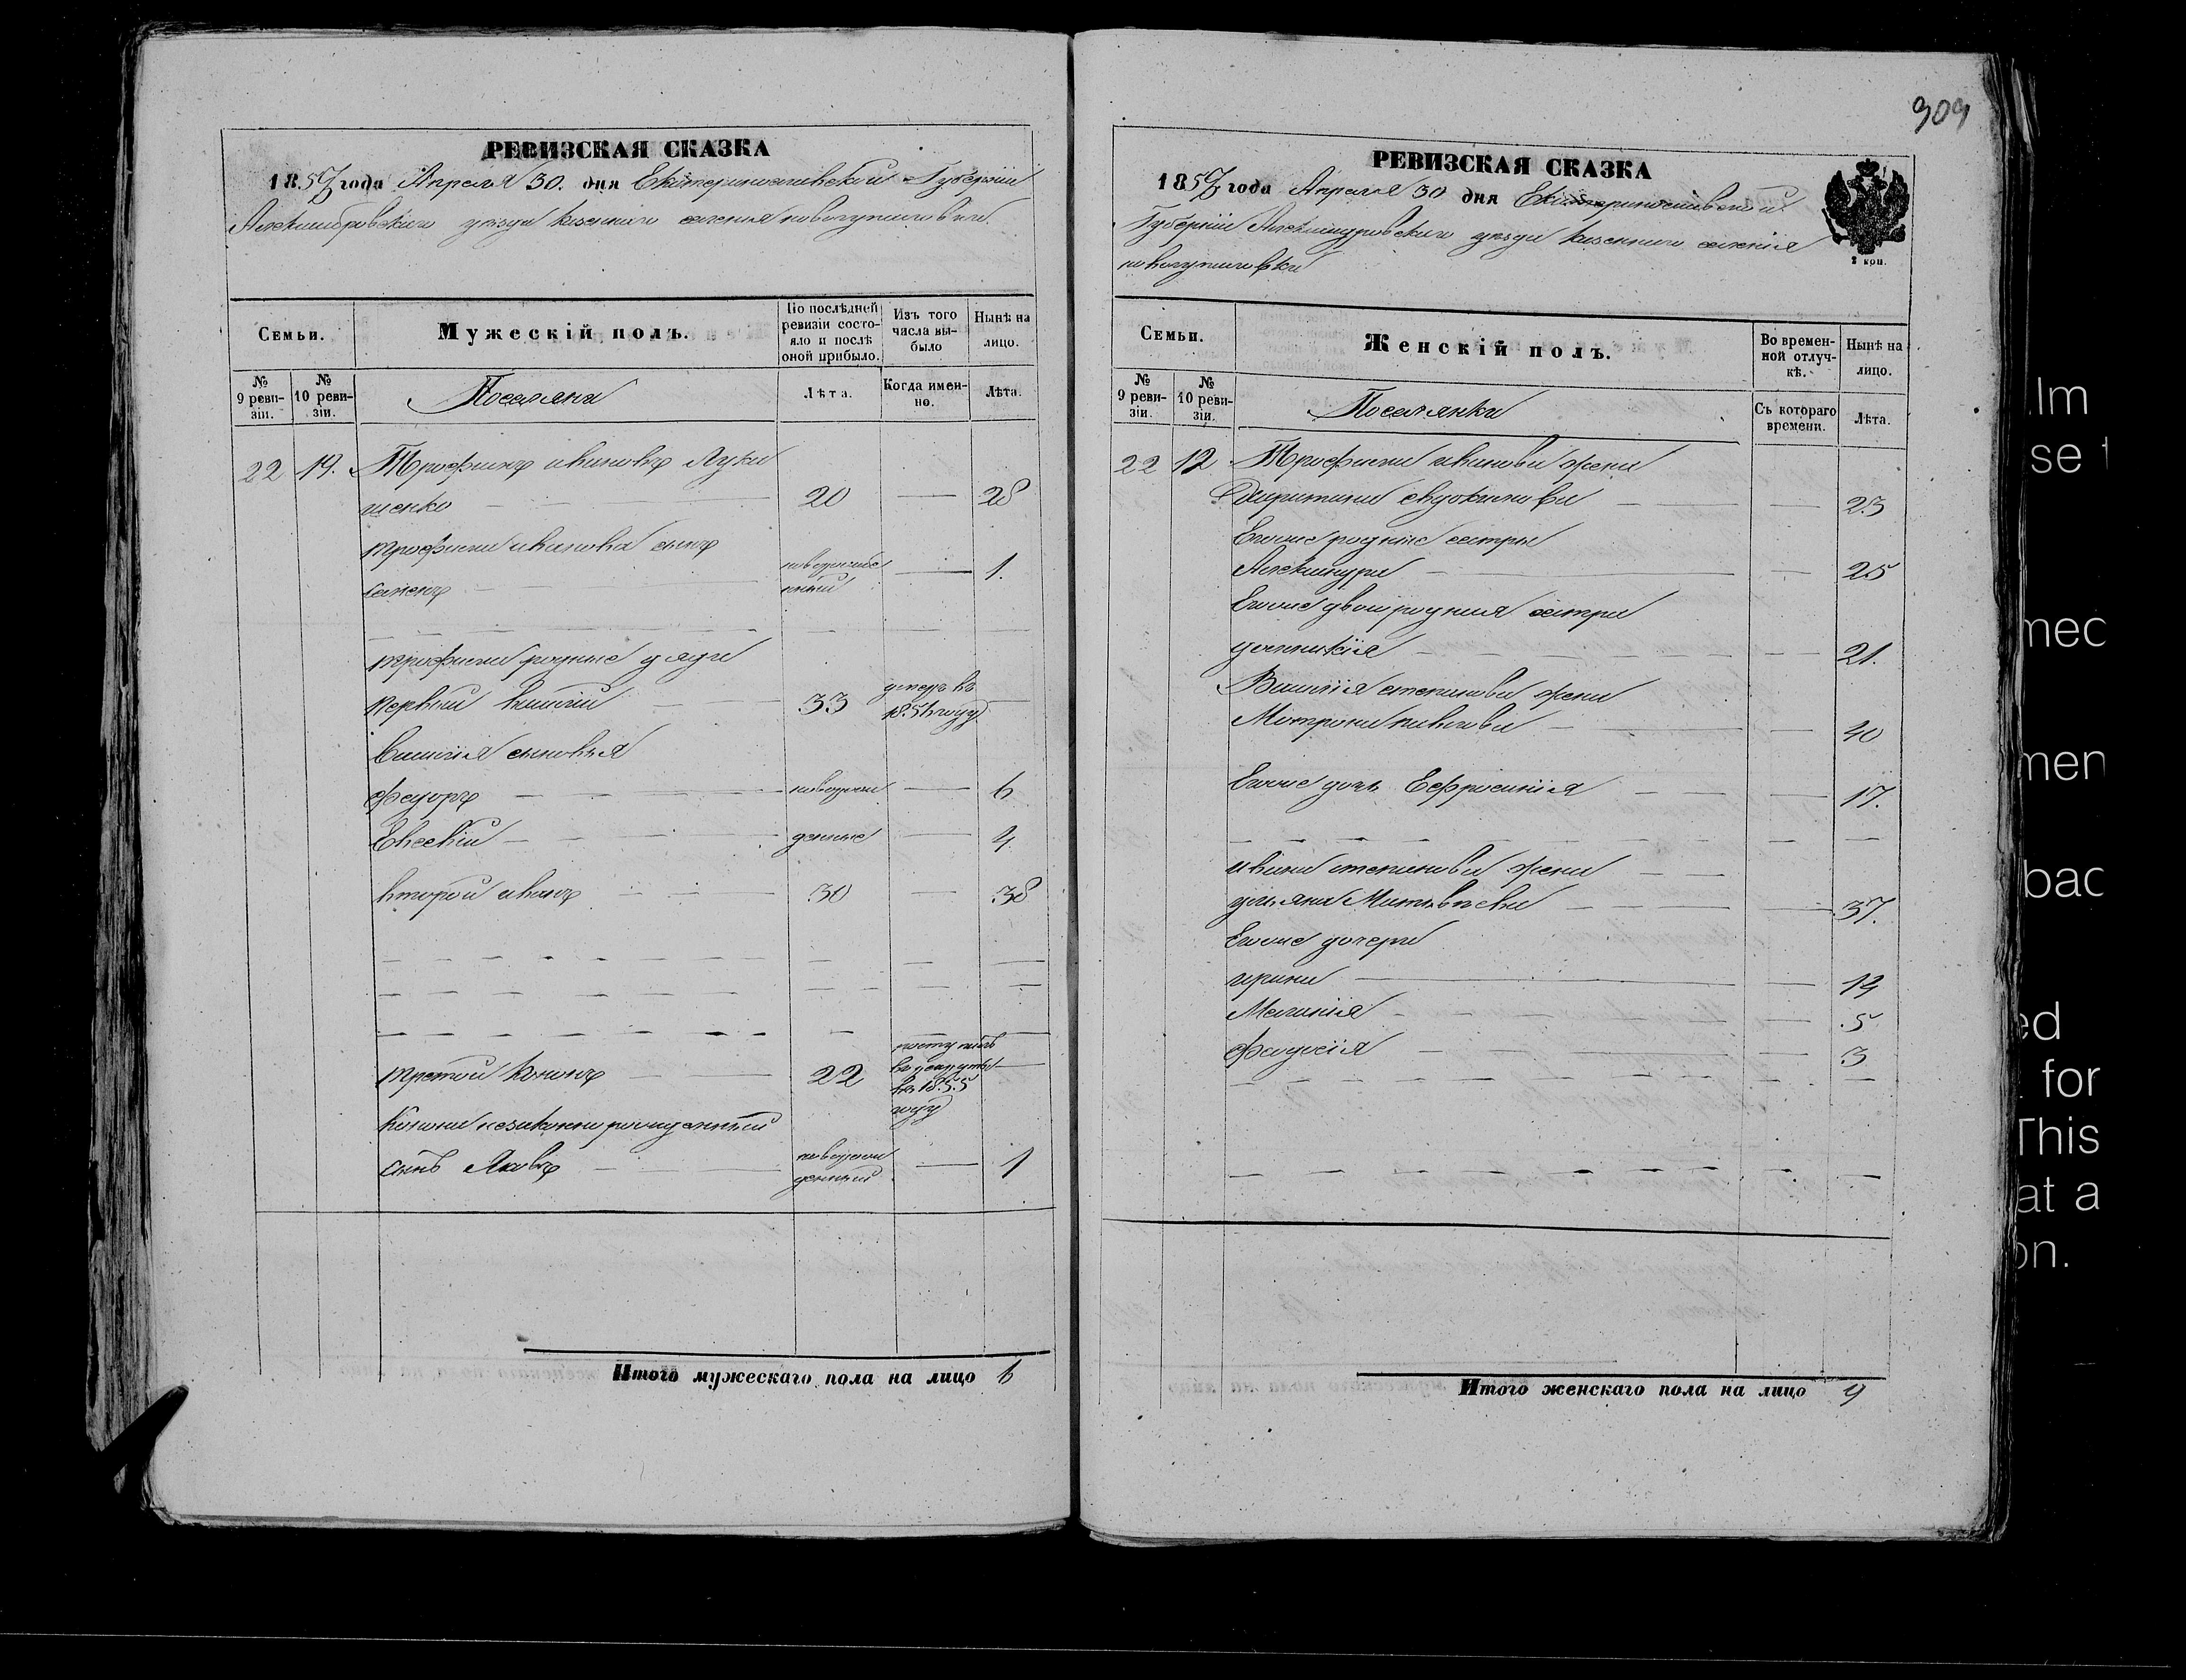 РЕВИЗСКАЯ СКАЗКА
1857 года Апреля 30. дня Екатеринославской Губернии
Александровского уезда казенного селения
Семьи.
Мужескій полъ.
По послѣдней ревизіи состояло и послѣ оной прибыло.
Изъ того числа выбыло
Нынѣ на лицо.
№ 9 ревизіи.
№ 10 ревизіи.
Поселяне
Лѣта.
Когда именно.
Лѣта.
22 19. Трофимъ Ивановъ Лука
шенко 20 28
Трофима Иванова сынъ
Семенъ новорожде
нный 1.
Трофима родные дяди
первый Василий 33 умеръ въ
185 году
Василия сыновья
Федоръ новорож 6
Евсевий денные 4
второй Иванъ 30 38
третий Кононъ 22 поступилъ
в рекруты
въ 1855
году
Конона незаконнорожденный
сынъ Яковъ новорож
денный 1
Итого мужескаго пола на лицо 6
909
РЕВИЗСКАЯ СКАЗКА
1857 года Апреля 30 дня Екатеринославской
Губернии Александровского уезда казенного селения
2 коп.
Семьи.
Женскій полъ.
Во временной отлучкѣ.
Нынѣ на лицо.
№ 9 ревизіи.
№ 10 ревизіи.
Поселянки
Съ котораго времени.
Лѣта.
22 12 Трофима Иванова жена
Евдокимова 23
Егоже родные сестры
Александра 25
Егоже двоюродная сестра
Домникия 21.
Василия Степанова жена
Матрона Павлова 40
Егоже дочь Ефросиния 17.
Ивана Степанова жена
Ульяна Матвеева 37.
Егоже дочери
Ирина 14
Мелания 5
Феодосия 3
Итого женскаго пола на лицо 9
lm
se t
mec
men
bac
ed
for
This
at a
on.